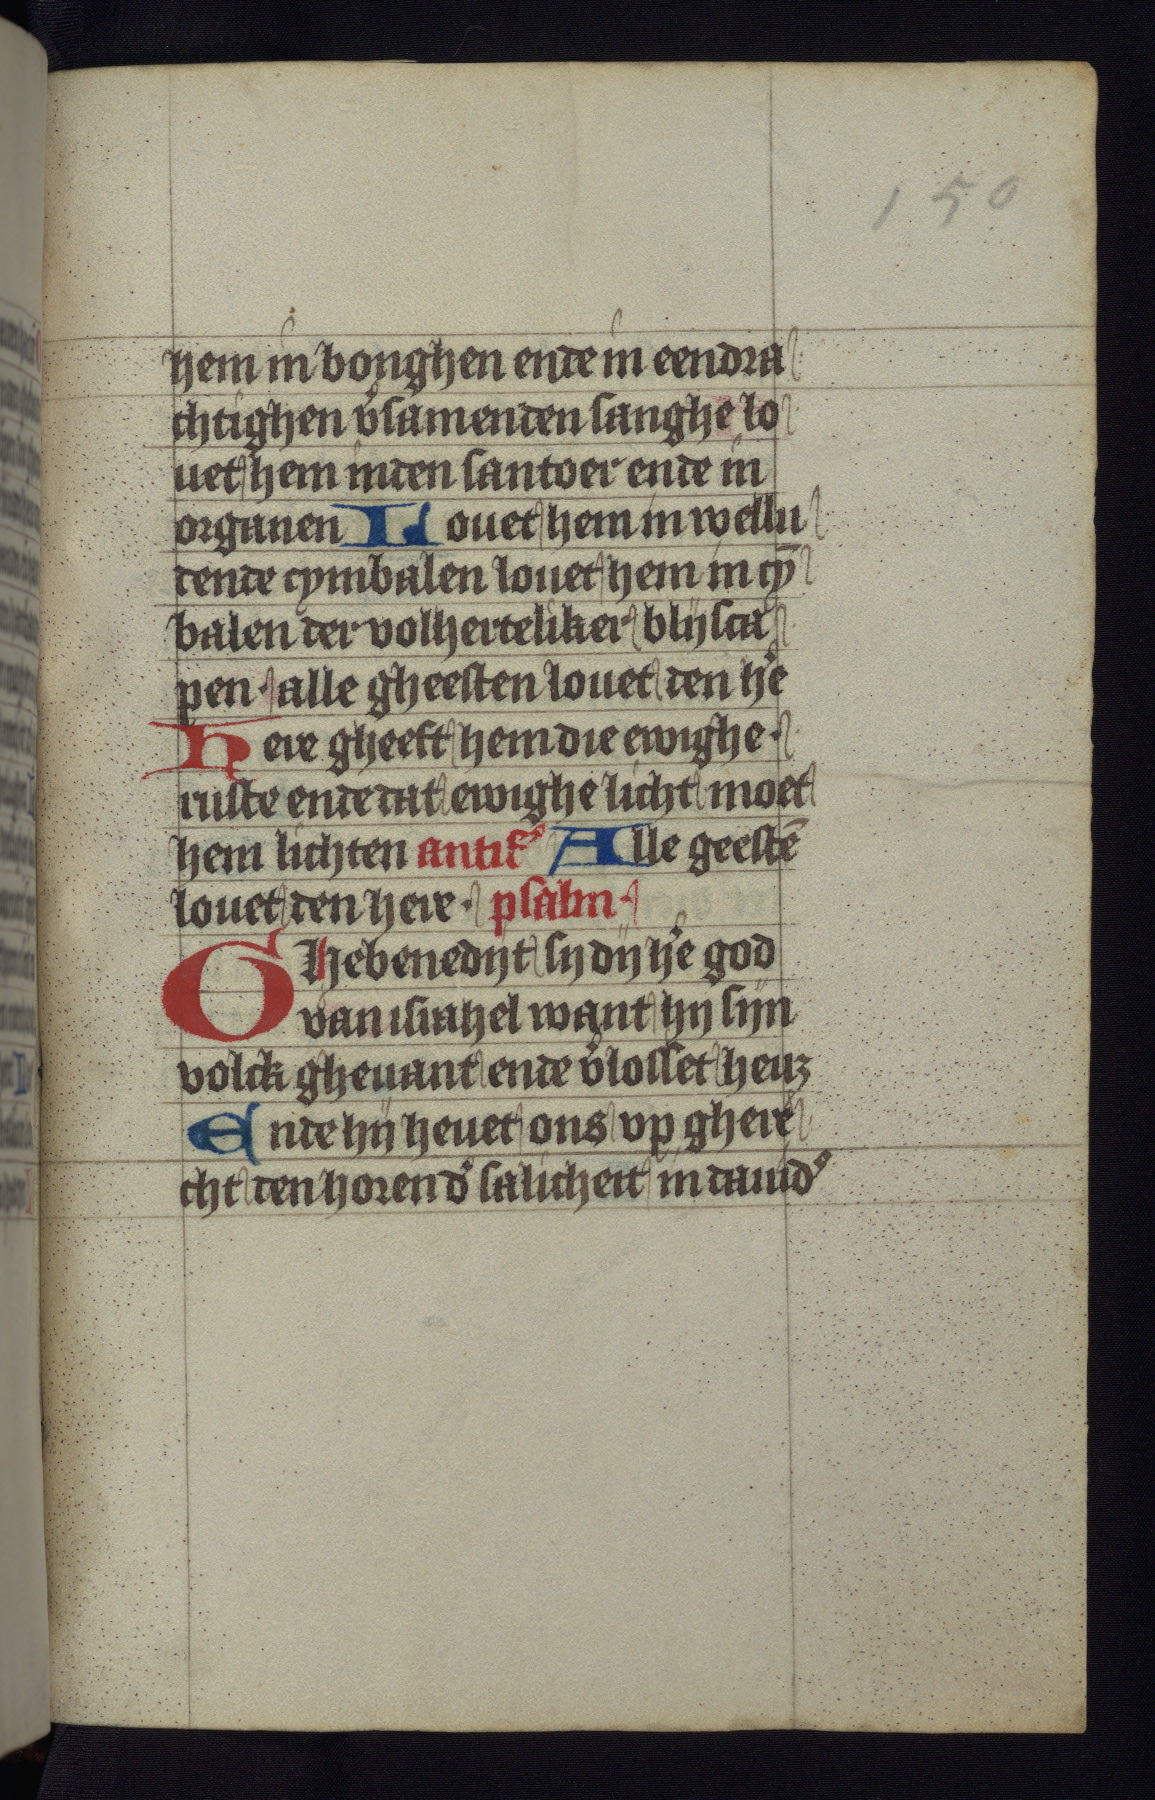 150
hem in bonghen ende in eendra
chtighen v̉samenden sanghe lo
uet hem inden santoer ende in
organen Louet hem in wellu
dende cymbalen louet hem in cȳ
balen der volherteliker blijsca
pen · alle gheesten louet den hẻ
Here gheeft hem die ewighe ·
ruste ende dat ewighe licht moet
hem lichten antif̉ Alle geestē
louet den here · psalm ·
Ghebenedijt sy dij hẻ god
van israhel want hij sijn
volck gheuant ende v̉losset heuꝫ
Ende hij heuet ons vp ghere
cht den horen d̉ salicheit in dauid̉